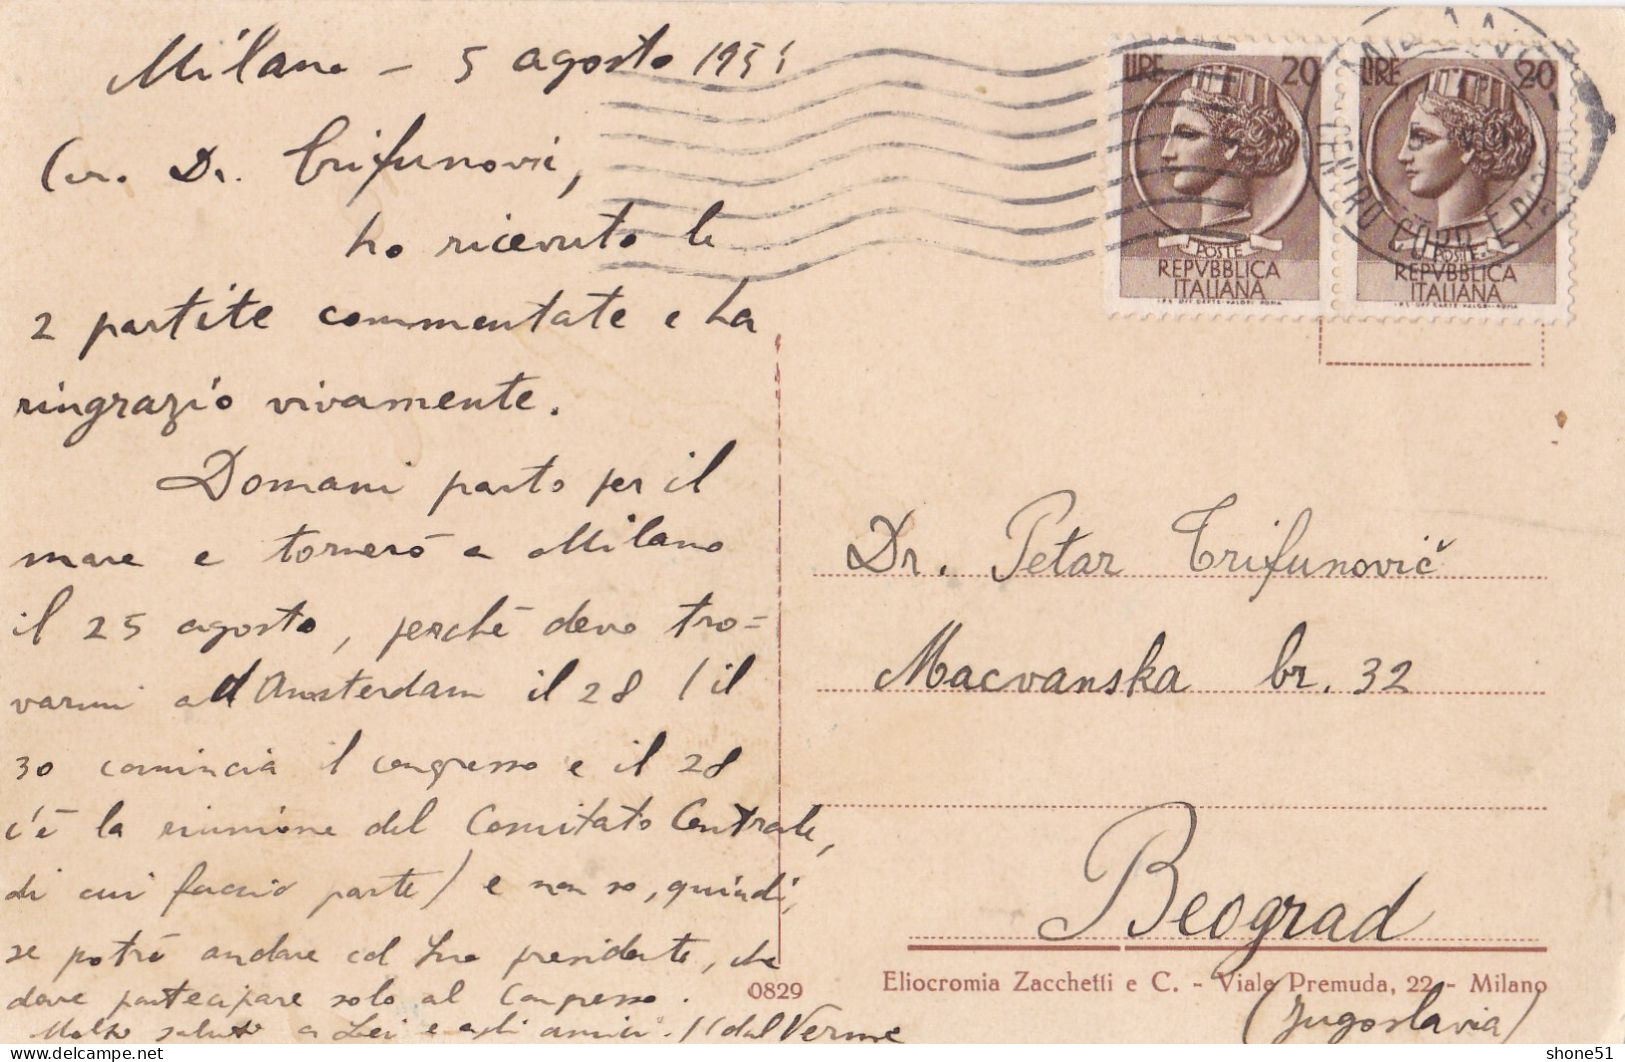 Milano - 5 agosto 195
Car. Dr. Trifunović,
ho ricevuto le
2 partite commentate e La
ringrazio vivamente.
Domani parto per il
mare e tornerò a Milano
il 25 agosto, perchè devo tro=
varmi ad Amsterdam il 28 (il
30 comincia il congresso e il 28
c'è la riunione del Comitato Centrale,
di cui faccio parte) e non so, quindi,
se potrò andare col Suo presidente, che
deve partecipare solo al Congresso.
Molti saluti a Lei e agli amici. dal Verme
LIRE 20
POSTE
REPVBBLICA
ITALIANA
I.P.S. OFF. CARTE-VALORI-ROMA
LIRE 20
POSTE
REPVBBLICA
ITALIANA
I.P.S. OFF. CARTE-VALORI-ROMA
CENTRO CORR. E
Dr. Petar Trifunovič
Macvanska br. 32
Beograd
(Jugoslavia)
0829
Eliocromia Zacchetti e C. - Viale Premuda, 22 - Milano
shone51